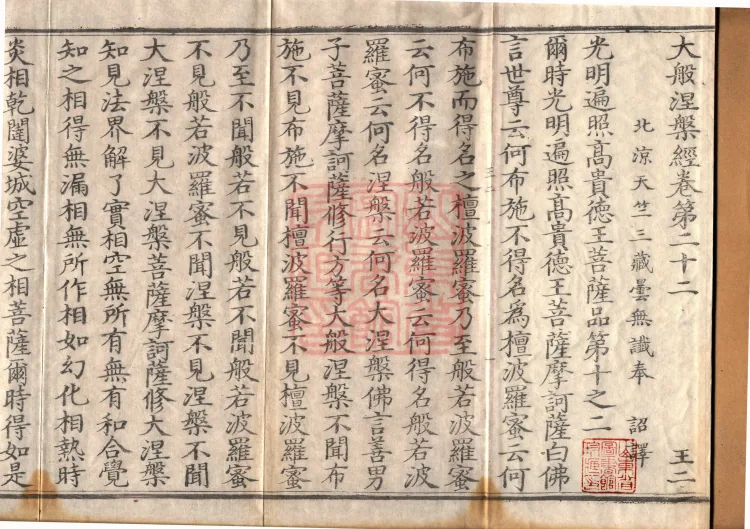 大般涅槃經卷第二十二 王二
北涼天竺三藏曇無讖奉 詔譯
光明遍照高貴德王菩薩品第十之二
爾時光明遍照高貴德王菩薩摩訶薩白佛
言世尊云何布施不得名為檀波羅蜜云何
布施而得名之檀波羅蜜乃至般若波羅蜜
云何不得名般若波羅蜜云何得名般若波
羅蜜云何名涅槃云何名大涅槃佛言善男
子菩薩摩訶薩修行方等大般涅槃不聞布
施不見布施不聞檀波羅蜜不見檀波羅蜜
乃至不聞般若不見般若不聞般若波羅蜜
不見般若波羅蜜不聞涅槃不見涅槃不聞
大涅槃不見大涅槃菩薩摩訶薩修大涅槃
知見法界解了實相空無所有無有和合覺
知之相得無漏相無所作相如幻化相熱時
炎相乾闥婆城空虛之相菩薩爾時得如是